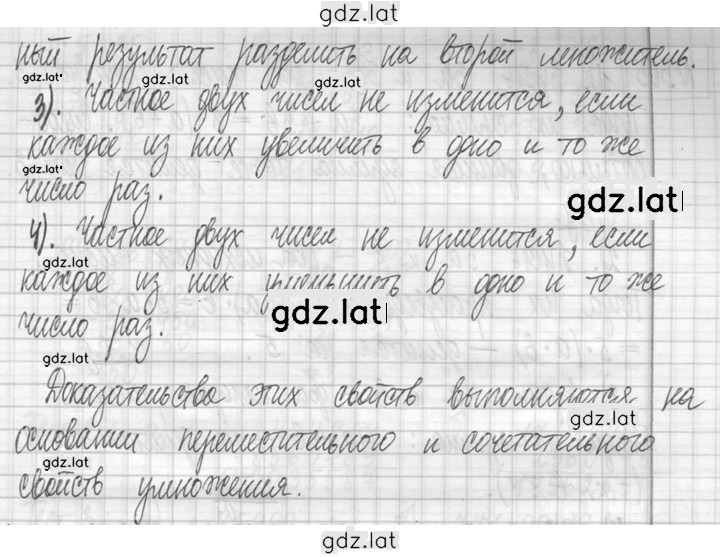 gdz.lat
ный результат разделить на второй множитель.
gdz.lat gdz.lat gdz.lat
3). Частное двух чисел не изменится, если
каждое из них увеличить в одно и то же
gdz.lat
число раз.
gdz.lat
4). Частное двух чисел не изменится, если
каждое из них уменьшить в одно и то же
gdz.lat
число раз.
gdz.lat
Доказательства этих свойств выполняются на
gdz.lat
основании переместительного и сочетательного
gdz.lat
свойств умножения.
gdz.lat